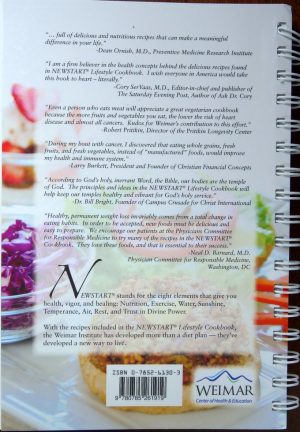 "... full of delicious and nutritious recipes that can make a meaningful
difference in your life."
-Dean Ornish, M.D., Preventive Medicine Research Institute
"I am a firm believer in the health concepts behind the delicious recipes found
in NEWSTART® Lifestyle Cookbook. I wish everyone in America would take
this book to heart – literally."
-Cory SerVaas, M.D., Editor-in-chief and publisher of
The Saturday Evening Post, Author of Ask Dr. Cory
"Even a person who eats meat will appreciate a great vegetarian cookbook
because the more fruits and vegetables you eat, the lower the risk of heart
disease and almost all cancers. Kudos for Weimar's contribution to this effort."
-Robert Pritikin, Director of the Pritikin Longevity Center
"During my bout with cancer, I discovered that eating whole grains, fresh
fruits, and fresh vegetables, instead of "manufactured" foods, would improve
my health and immune system."
-Larry Burkett, President and Founder of Christian Financial Concepts
"According to God's holy, inerrant Word, the Bible, our bodies are the temple
of God. The principles and ideas in the NEWSTART® Lifestyle Cookbook will
help keep our temples healthy and vibrant for God's holy service."
-Dr. Bill Bright, Founder of Campus Crusade for Christ International
"Healthy, permanent weight loss invariably comes from a total change in
eating habits. In order to be accepted, new foods must be delicious and
easy to prepare. We encourage our patients at the Physicians Committee
For Responsible Medicine to try many of the recipes in the NEWSTART®
Cookbook. They love these foods, and that is essential to their success."
-Neal D. Barnard, M.D.
Physicians Committee for Responsible Medicine,
Washington, DC
NEWSTART® stands for the right elements that give you
health, vigor, and healing: Nutrition, Exercise, Water, Sunshine,
Temperance, Air, Rest, and Trust in Divine Power.
With the recipes included in the NEWSTART® Lifestyle Cookbook,
the Weimar Institute has developed more than a diet plan — they've
developed a new way to live.
ISBN 0-7852-6130-3
9 780785 261919
WEIMAR
Center of Health & Education